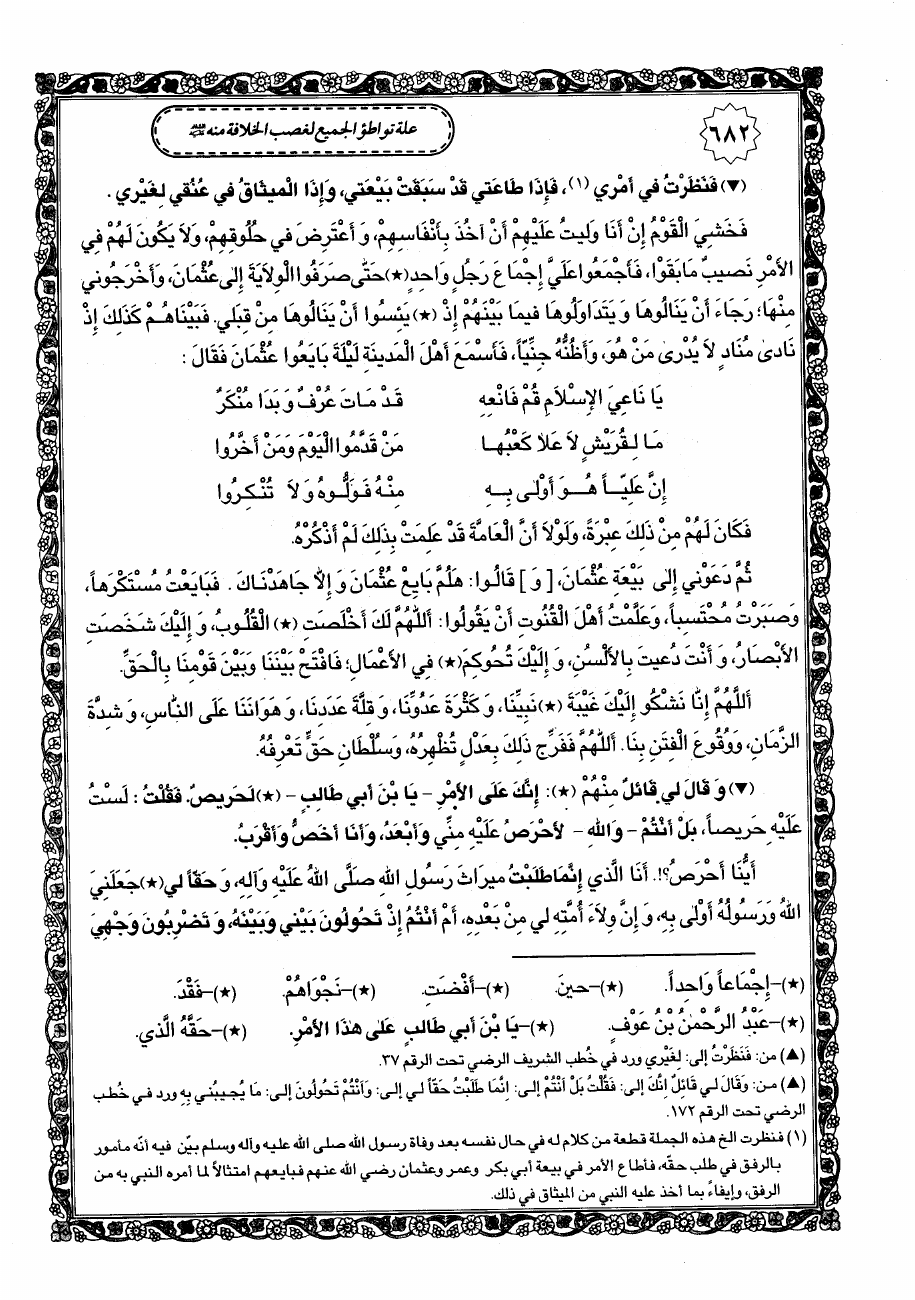 ٦٨٢
علة تواطؤ الجميع لغصب الخلافة منه
(▼) فَنَظَرْتُ في أَمْري (١)، فَإِذَا طَاعَتي قَدْ سَبَقَتْ بَيْعَتي، وَإِذَا الْميثَاقُ في عُنُقي لِغَيْري .
فَخَشِيَ الْقَوْمُ إِنْ أَنَا وَليتُ عَلَيْهِمْ أَنْ آخُذَ بِأَنْفَاسِهِمْ، وَ أَعْتَرِضَ في حُلُوقِهِمْ، وَلاَ يَكُونَ لَهُمْ فِي
الأَمْرِ نَصيبٌ مَا بَقَوْا، فَأَجْمَعُوا عَلَيَّ إِجْمَاعَ رَجُلٍ وَاحِدٍ(★) حَتّٰى صَرَفُوا الْوِلاَيَةَ إِلٰى عُثْمَانَ، وَأَخْرَجُوني
مِنْهَا؛ رَجَاءَ أَنْ يَنَالُوهَا وَ يَتَدَاوَلُوهَا فيمَا بَيْنَهُمْ إِذْ (★) يَئِسُوا أَنْ يَنَالُوهَا مِنْ قِبَلي. فَبَيْنَاهُمْ كَذَلِكَ إِذْ
نَادىٰ مُنَادٍ لاَ يُدْرىٰ مَنْ هُوَ، وَأَظُنُّهُ جِنِّيّاً، فَأَسْمَعَ أَهْلَ الْمَدينَةِ لَيْلَةَ بَايَعُوا عُثْمَانَ فَقَالَ :
يَا نَاعِيَ الإِسْلاَمِ قُمْ فَانْعِهِ قَدْ مَاتَ عُرْفٌ وَ بَدَا مُنْكَرٌ
مَا لِقُرَيْشٍ لاَ عَلاَ كَعْبُهَا مَنْ قَدَّمُوا الْيَوْمَ وَمَنْ أَخَّرُوا
إِنَّ عَلِيّاً هُوَ أَوْلٰى بِهِ مِنْهُ فَوَلُّوهُ وَ لاَ تُنْكِرُوا
فَكَانَ لَهُمْ مِنْ ذَلِكَ عِبْرَةً، وَلَوْلاَ أَنَّ الْعَامَّةَ قَدْ عَلِمَتْ بِذَلِكَ لَمْ أَذْكُرْهُ.
ثُمَّ دَعَوْني إِلٰى بَيْعَةِ عُثْمَانَ، [ وَ ] قَالُوا: هَلُمَّ بَايِعْ عُثْمَانَ وَ إِلاَّ جَاهَدْنَاكَ . فَبَايَعْتُ مُسْتَكْرَهاً،
وَصَبَرْتُ مُحْتَسِباً، وَعَلَّمْتُ أَهْلَ الْقُنُوتِ أَنْ يَقُولُوا: أَللّٰهُمَّ لَكَ أَخْلَصَتِ (★) الْقُلُوبُ، وَ إِلَيْكَ شَخَصَتِ
الأَبْصَارُ، وَ أَنْتَ دُعيتَ بِالأَلْسُنِ، وَ إِلَيْكَ تُحُوكِمَ(★) فِي الأَعْمَالِ؛ فَافْتَحْ بَيْنَنَا وَبَيْنَ قَوْمِنَا بِالْحَقِّ.
أَللّٰهُمَّ إِنَّا نَشْكُو إِلَيْكَ غَيْبَةَ (★) نَبِيِّنَا، وَ كَثْرَةَ عَدُوِّنَا، وَ قِلَّةَ عَدَدِنَا، وَ هَوَانَنَا عَلَى النَّاسِ، وَ شِدَّةَ
الزَّمَانِ، وَوُقُوعَ الْفِتَنِ بِنَا. أَللّٰهُمَّ فَفَرِّجْ ذَلِكَ بِعَدْلٍ تُظْهِرُهُ، وَسُلْطَانِ حَقٍّ تَعْرِفُهُ.
(▼) وَ قَالَ لي قَائِلٌ مِنْهُمْ (★): إِنَّكَ عَلَى الأَمْرِ - يَا بْنَ أَبي طَالِبٍ - (★) لَحَريصٌ. فَقُلْتُ : لَسْتُ
عَلَيْهِ حَريصاً، بَلْ أَنْتُمْ - وَاللهِ - لأَحْرَصُ عَلَيْهِ مِنّي وَأَبْعَدُ، وَأَنَا أَخَصُّ وَأَقْرَبُ.
أَيُّنَا أَحْرَصُ؟!. أَنَا الَّذي إِنَّمَا طَلَبْتُ ميرَاثَ رَسُولِ اللهِ صَلَّى اللهُ عَلَيْهِ وَآلِهِ، وَ حَقّاً لي(★) جَعَلَنِيَ
اللهُ وَرَسُولُهُ أَوْلٰى بِهِ، وَ إِنَّ وِلاَءَ أُمَّتِهِ لي مِنْ بَعْدِهِ، أَمْ أَنْتُمْ إِذْ تَحُولُونَ بَيْني وَبَيْنَهُ، وَ تَضْرِبُونَ وَجْهِيَ
(★)-إِجْمَاعاً وَاحِداً. (★)-حينَ. (★)-أَفْضَتِ. (★)-نَجْوَاهُمْ. (★)-فَقْدَ.
(★)-عَبْدُ الرَّحْمٰنُ بْنُ عَوْفٍ. (★)-يَا بْنَ أَبي طَالِبٍ عَلىٰ هٰذَا الأَمْرِ. (★)-حَقَّهُ الَّذي.
(▲) من: فَنَظَرْتُ إلى: لغَيْري ورد في خُطب الشريف الرضي تحت الرقم ٣٧.
(▲) من: وَقَالَ لي قَائِلٌ إنَّكَ إلى: فَقُلْتُ بَلْ أَنْتُمْ إلى: إنَّمَا طَلَبْتُ حَقّاً لي إلى: وَأَنْتُمْ تَحُولُونَ إلى: مَا يُجيبُني بِهِ ورد في خُطب
الرضي تحت الرقم ١٧٢.
(١) فنظرت الخ هذه الجملة قطعة من كلام له في حال نفسه بعد وفاة رسول الله صلى الله عليه وآله وسلم بيّن فيه أنّه مأمور
بالرفق في طلب حقّه، فأطاع الأمر في بيعة أبي بكر وعمر وعثمان رضي الله عنهم فبايعهم امتثالاً لما أمره النبي به من
الرفق، وإيفاءً بما أخذ عليه النبي من الميثاق في ذلك.